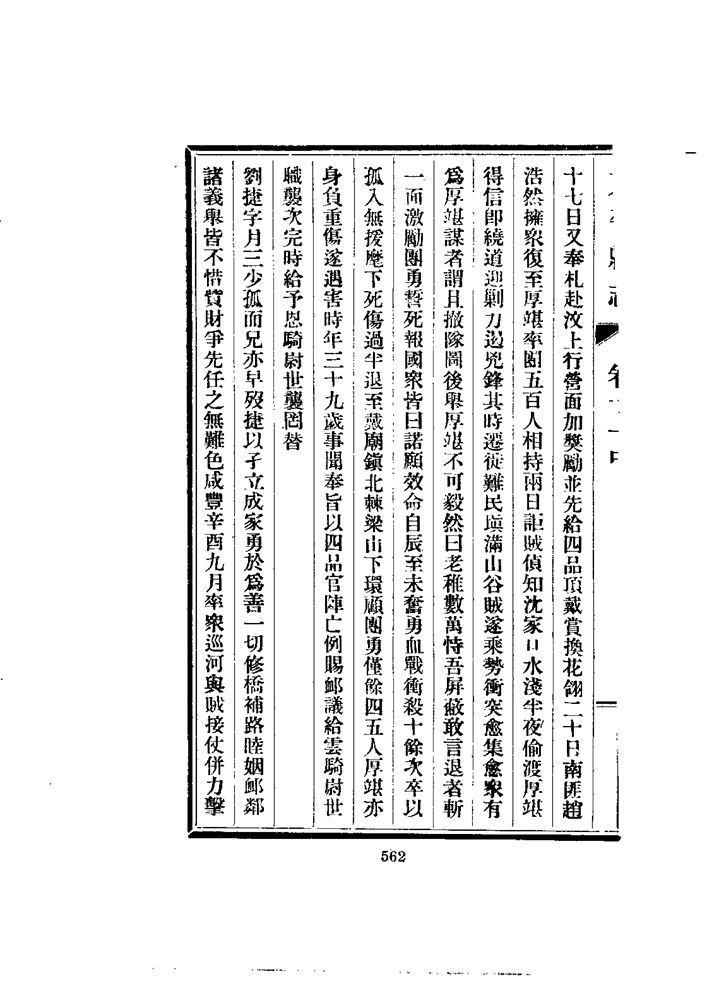 十七日又奉札赴汶上行營面加獎勵並先給四品頂戴賞換花翎二十日南匪趙
浩然擁衆復至厚堪率團五百人相持兩日詎賊偵知沈家口水淺半夜偷渡厚堪
得信卽繞道迎剿力遏兇鋒其時遷徙難民塡滿山谷賊遂乘勢衝突愈集愈衆有
爲厚堪謀者謂且撤隊圖後舉厚堪不可毅然曰老稚數萬恃吾屏蔽敢言退者斬
一面激勵團勇誓死報國衆皆曰諾願效命自辰至未奮勇血戰衝殺十餘次卒以
孤入無援麾下死傷過半退至戴廟鎭北棘梁山下環顧團勇僅餘四五人厚堪亦
身負重傷遂遇害時年三十九歲事聞奉旨以四品官陣亡例賜卹議給雲騎尉世
職襲次完時給予恩騎尉世襲罔替
劉捷字月三少孤而兄亦早歿捷以孑立成家勇於爲善一切修橋補路睦姻卹鄰
諸義舉皆不惜貲財爭先任之無難色咸豐辛酉九月率衆巡河與賊接仗併力擊
562